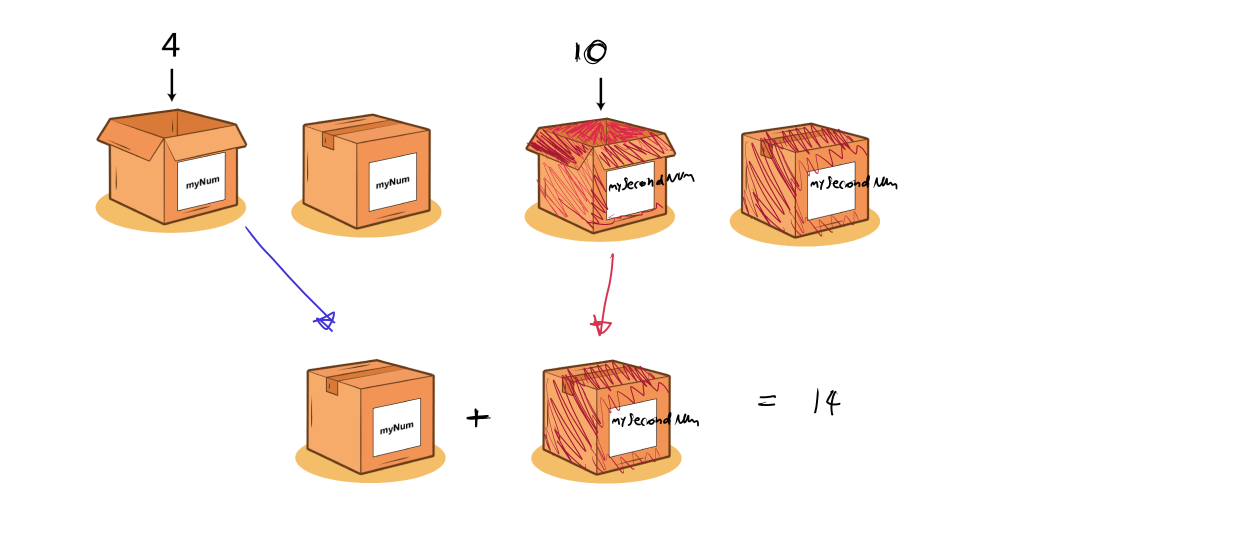 4
10
myNum
myNum
mySecondNum
mySecondNum
myNum + mySecondNum = 14